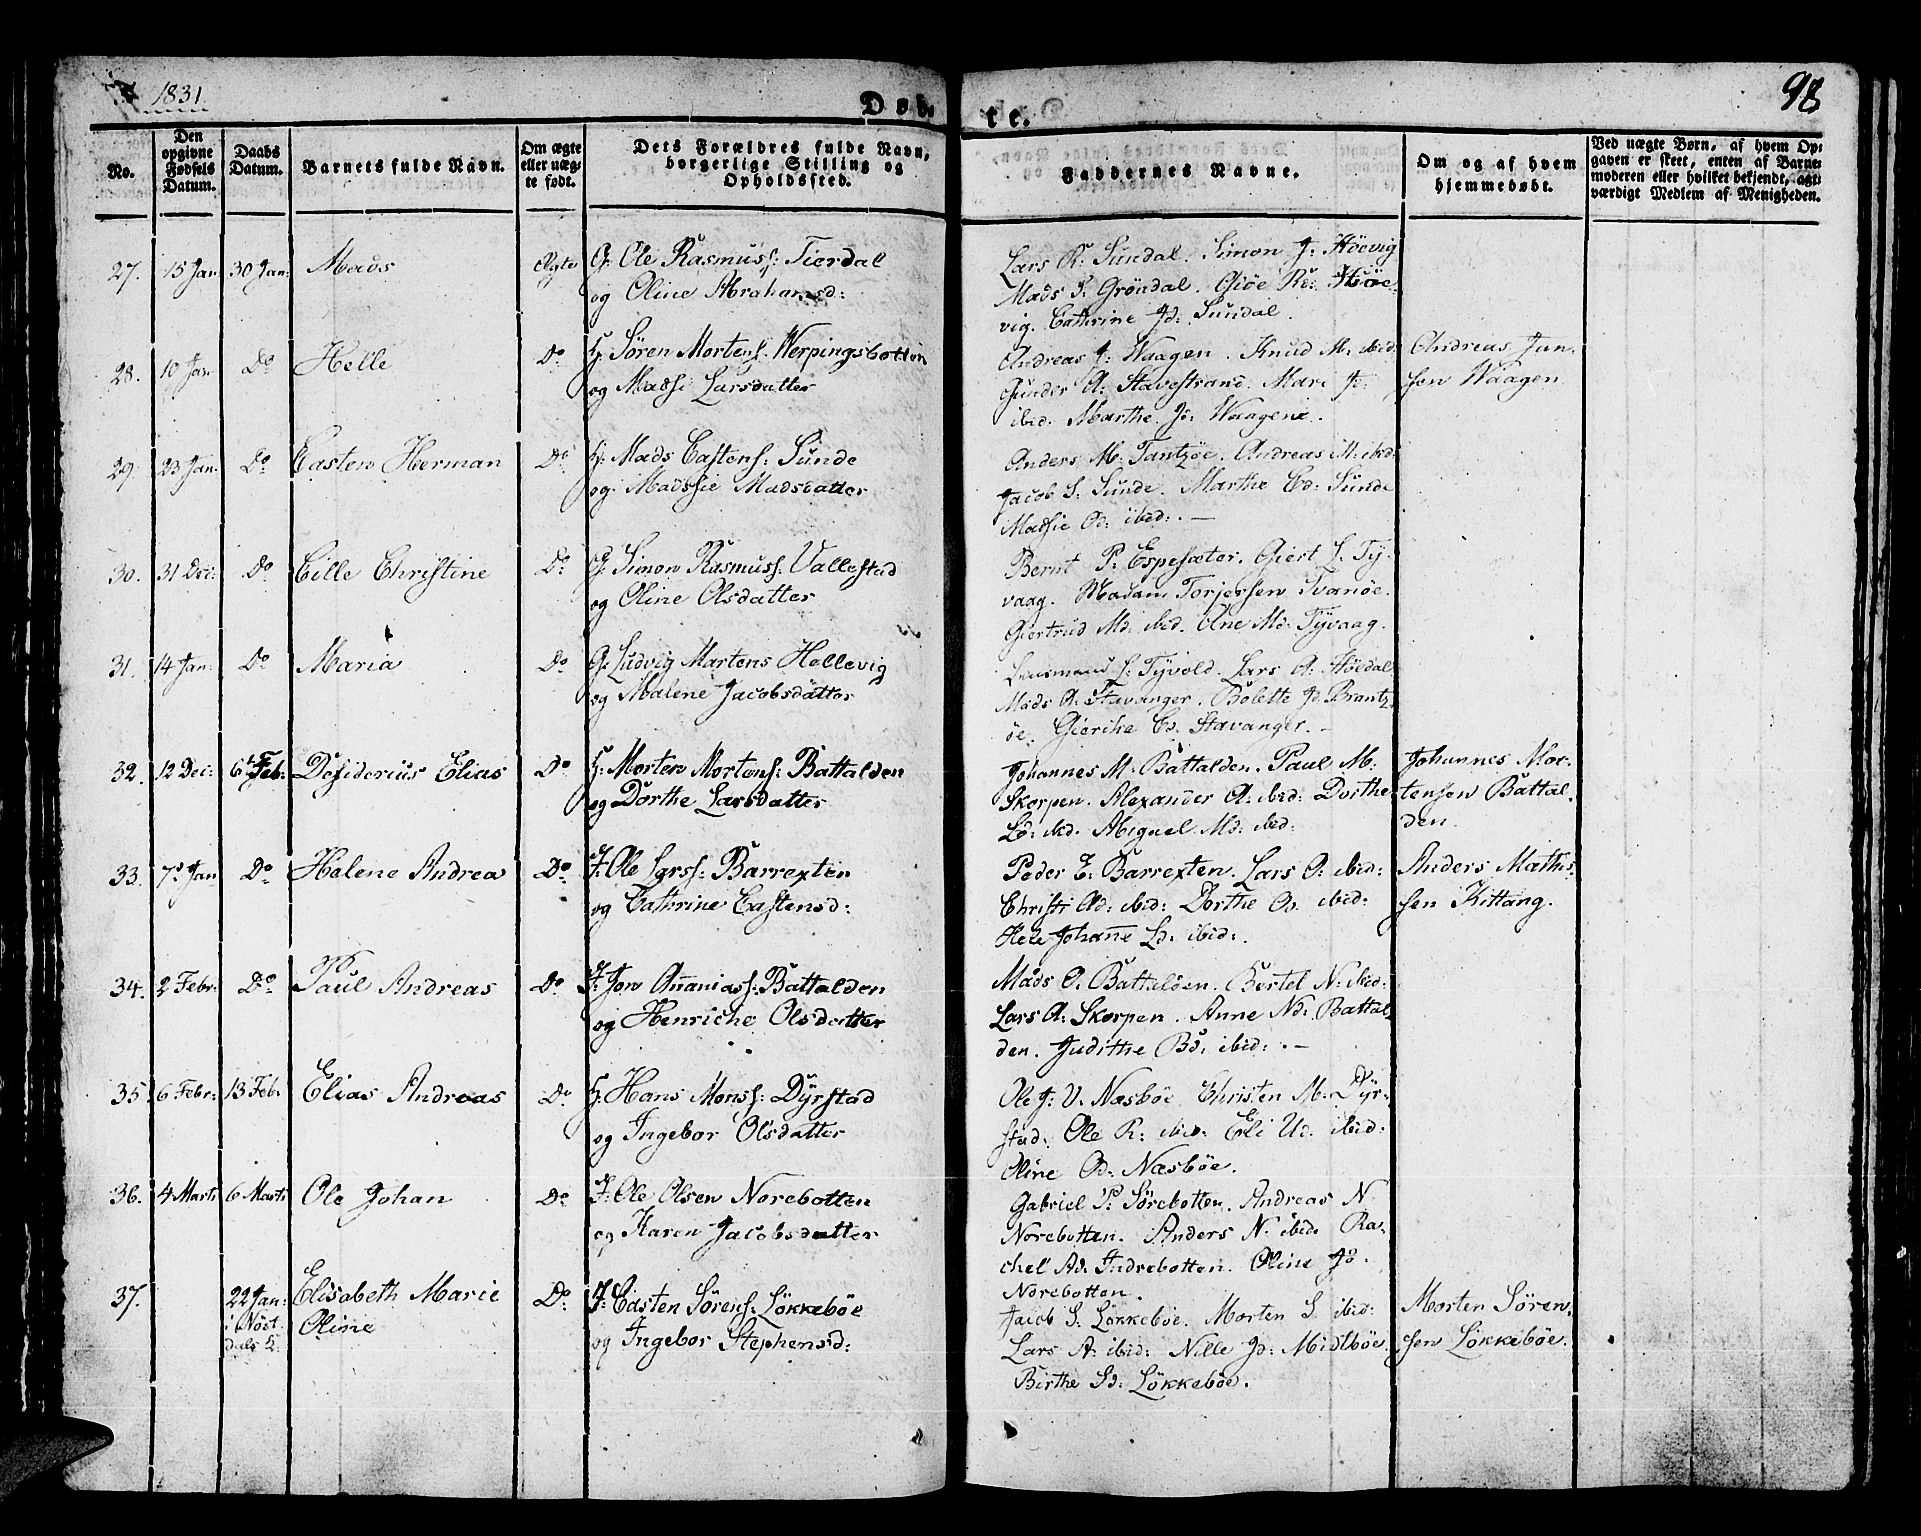 1831
Døb-
te.
98
No.
Den opgivne Fødsels Datum.
Daabs Datum.
Barnets fulde Navn.
Om ægte eller uægte født.
Dets Forældres fulde Navn, borgerlige Stilling og Opholdssted.
Faddernes Navne.
Om og af hvem hjemmedøbt.
Ved uægte Børn, af hvem Opgaven er skeet, enten af Barnemoderen eller hvilket bekjendt, agtværdigt Medlem af Menigheden.
27. 15 Jan: 30 Jan: Mads Ægte G: Ole Rasmuss: Tierdal
og Oline Abrahamsd:
Lars R: Sundal. Simon J: Høevig
Mads S. Grøndal. Giøe Rd: Høe-
vig. Cathrine Jd: Sundal.
28. 10 Jan Do Helle Do G: Søren Mortens: Werpingsbotten
og Madsi Larsdatter
Andreas J: Waagen. Knud M: ibid:
Gunder A: Stavestrand. Mari Jd:
ibid. Marthe Jd: Waagene.
Andreas Jan-
sen Waagen
29. 23 Jan: Do Casten Herman Do G: Mads Castens: Sunde
og Madssie Madsdatter
Anders M: Tantzøe. Andreas M: ibid:
Jacob S: Sunde. Marthe Cd: Sunde
Madsie Od: ibid:
30. 31 Dec: Do Cille Christine Do G: Simon Rasmuss: Vallestad
og Oline Olsdatter
Bernt P: Espesæter. Giert L: Ty-
vaag. Madam Torjersen Svanøe.
Giertrud Md: ibid. Ane Md: Tyvaag.
31. 14 Jan: Do Maria Do G: Ludvig Martens Hellevig
og Malene Jacobsdatter
Lensmand L: Tyvold. Lars A: Høedal
Mads A: Stavanger. Bolette Jd: Brantz-
øe. Gierche Cd. Stavanger.
32. 12 Dec: 6te Feb: Desiderius Elias Do G: Morten Mortens: Battalden
og Dorthe Larsdatter
Johannes M: Battalden. Paul M:
Skorpen. Alexander A: ibid: Dorthe
Ld: ibid. Abiguel Md: ibid:
Johannes Mor-
tensen Battal-
den.
33. 7de Jan Do Helene Andrea Do J: Ole Larss: Barrexten
og Cathrine Castensd:
Peder E: Barrexten. Lars O: ibid:
Christi Ad: ibid: Dorthe Od. ibid:
Hele Johanne Ld: ibid:
Anders Mathis-
sen Kittang.
34. 2 Febr: Do Paul Andreas Do J: Jon Ananiass: Battalden
og Henriche Olsdatter
Mads O. Battalden. Bertel N: ibid:
Lars A: Skorpen. Anne Nd: Battal-
den. Judithe Bd: ibid:
35. 6 Febr: 13 Feb: Elias Andreas Do G: Hans Monss: Dyrstad
og Ingebor Olsdatter
Ole J: V. Næsbøe. Christen M: Dyr-
stad. Ole R: ibid: Eli Ud: ibid:
Oline Od: Næsbøe.
36. 4 Marti 6 Marti Ole Johan Do J: Ole Olsen Norebotten
og Karen Jacobsdatter
Gabriel P: Sørebotten. Andreas N:
Norebotten. Anders N: ibid: Ra-
chel Ad: Indrebotten. Oline Jd:
Norebotten.
37. 22 Jan: i Nøst-dals K: Elisabeth Marie Do: J: Casten Sørens: Løkkebøe
Oline og Ingebor Stephensd:
Jacob S. Løkkebøe. Morten S. ibid:
Lars A: ibid: Nille Jd: Midtbøe
Birthe Sd: Løkkebøe.
Morten Søren-
sen Løkkebøe.